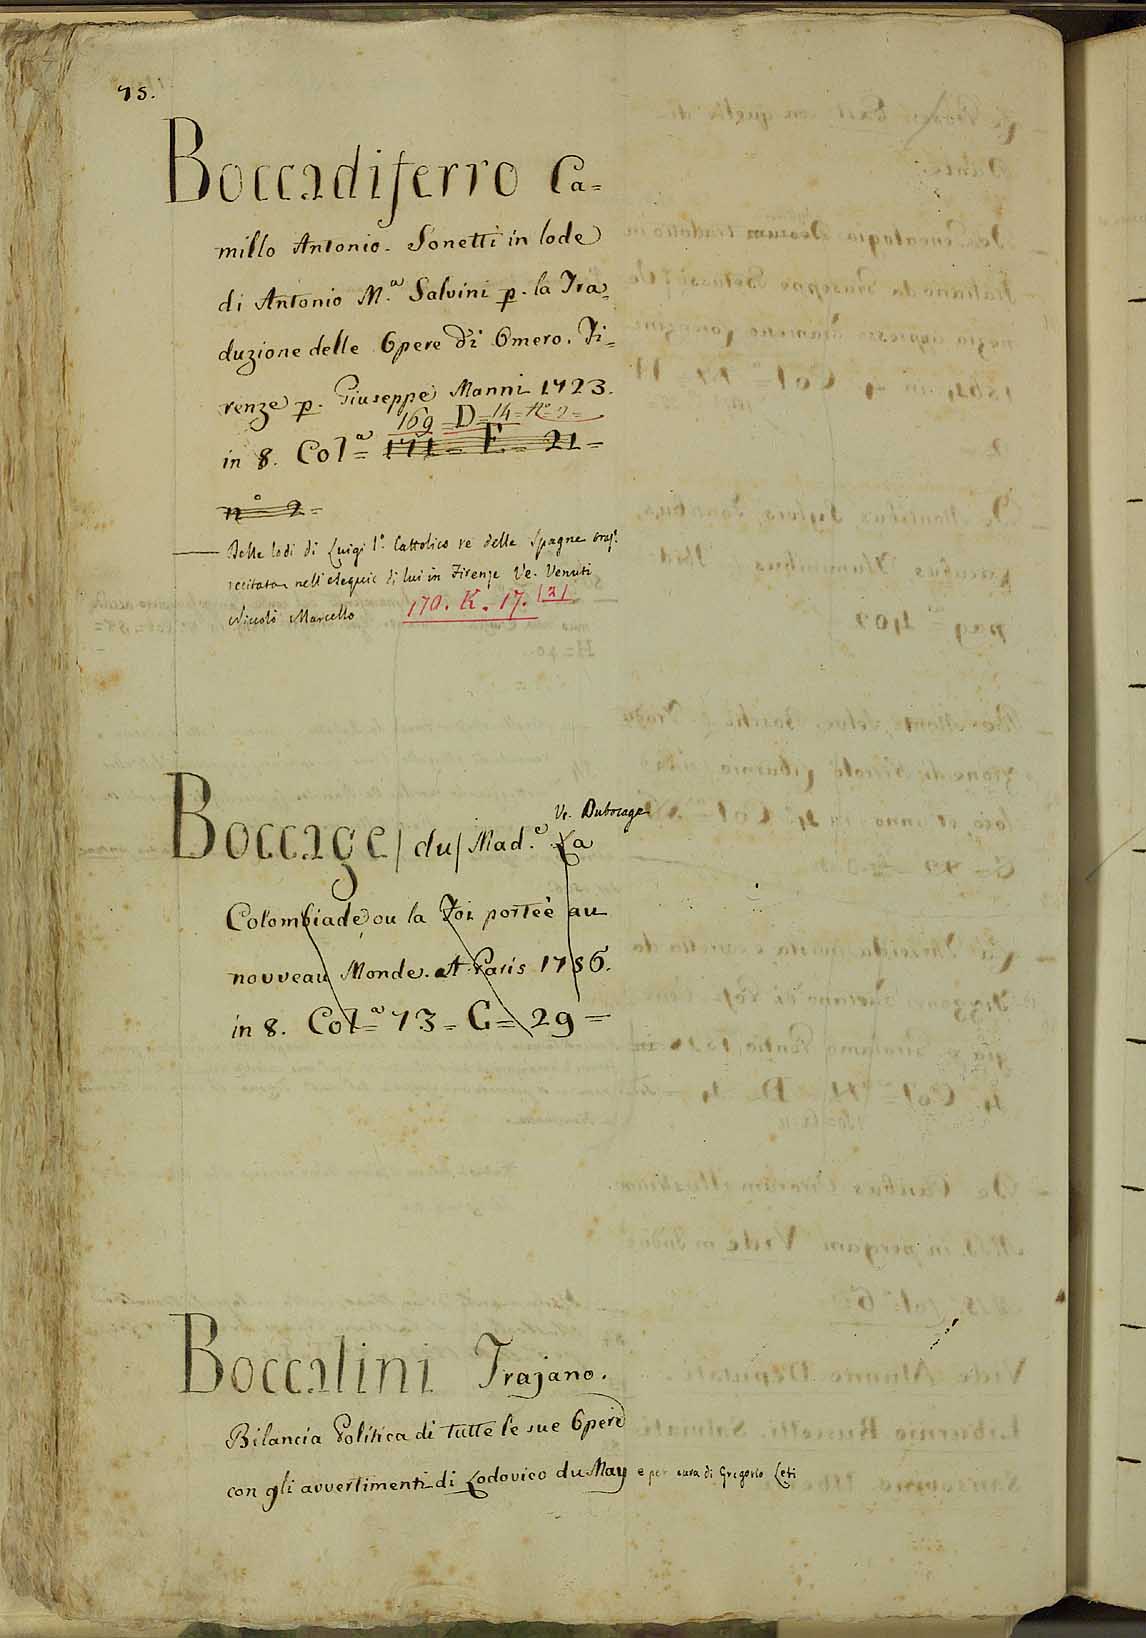 75.
Boccadiferro Ca=
millo Antonio. Sonetti in lode
di Antonio M.a Salvini p. la Tra=
duzione delle Opere di Omero. Fi=
renze p. Giuseppe Manni 1723.
169 = D = 14 = No 2 =
in 8. Col.a = 171 = E = 21 =
n.o 2 =
Delle lodi di Luigi I.o Cattolico re delle Spagne oraz.
recitata nell'esequie di lui in Firenze Ve. Venuti
Niccolò Marcello 170. K. 17. (2)
Ve. Dubocage
Boccage (du) Mad.e La
Colombiade, ou la Foi porteè au
nouveau Monde. A Paris 1756.
in 8. Col.a = 73 = G = 29 =
Boccalini Trajano.
Bilancia Politica di tutte le sue Opere
con gli avvertimenti di Lodovico du May e per cura di Gregorio Leti